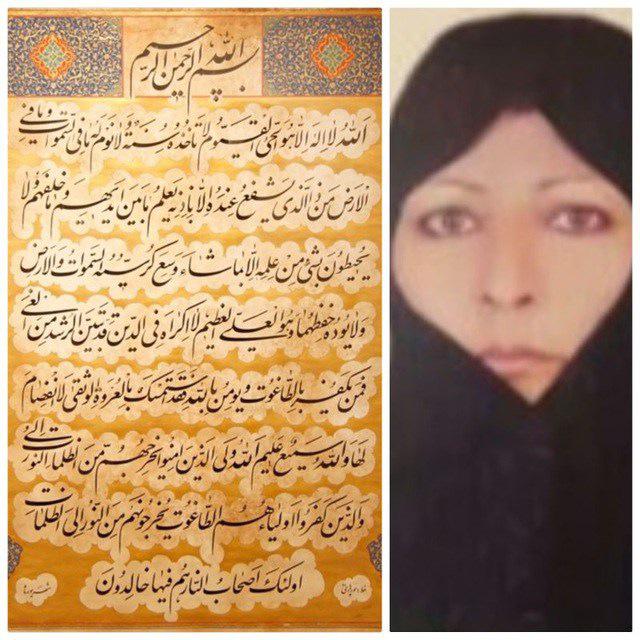 بسم الله الرحمن الرحیم
الله لا اله الا هو الحی القیوم لا تاخذه سنة ولا نوم له ما فی السموات و ما فی
الارض من ذا الذی یشفع عنده الا باذنه یعلم ما بین ایدیهم و ما خلفهم ولا
یحیطون بشیء من علمه الا بماشاء وسع کرسیه السموات والارض
ولا یوده حفظهما وهو العلی العظیم لا اکراه فی الدین قد تبین الرشد من الغی
فمن یکفر بالطاغوت و یومن بالله فقد استمسک بالعروة الوثقی لا انفصام
لها والله سمیع علیم الله ولی الذین امنوا یخرجهم من الظلمات الی النور
والذین کفروا اولیاءهم الطاغوت یخرجونهم من النور الی الظلمات
اولئک اصحاب النار هم فیها خالدون